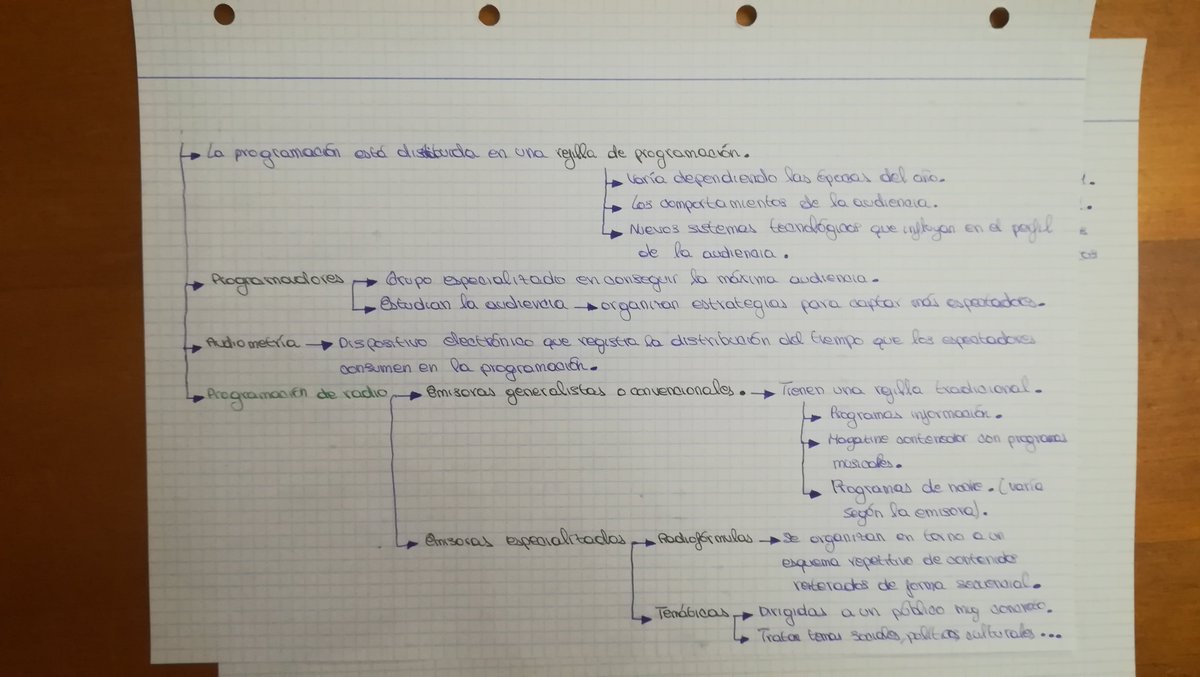 La programación está distituida en una rejilla de programación.
Varía dependiendo las épocas del año.
Los comportamientos de la audiencia.
Nuevos sistemas tecnológicos que influyan en el perfil
de la audiencia.
Programadores
Grupo especializado en conseguir la máxima audiencia.
Estudian la audiencia → organizan estrategias para captar más espectadores.
Audiometría → Dispositivo electrónico que registra la distribución del tiempo que los espectadores
consumen en la programación.
Programación de radio
Emisoras generalistas o convencionales. → Tienen una rejilla tradicional.
Programas información.
Magazine contenedor con programas
musicales.
Programas de noche. (varía
según la emisora).
Emisoras especializadas
Radiofórmulas → Se organizan en torno a un
esquema repetitivo de contenidos
reiterados de forma secuencial.
Temáticas
Dirigidas a un público muy concreto.
Tratar temas sociales, políticos culturales ...